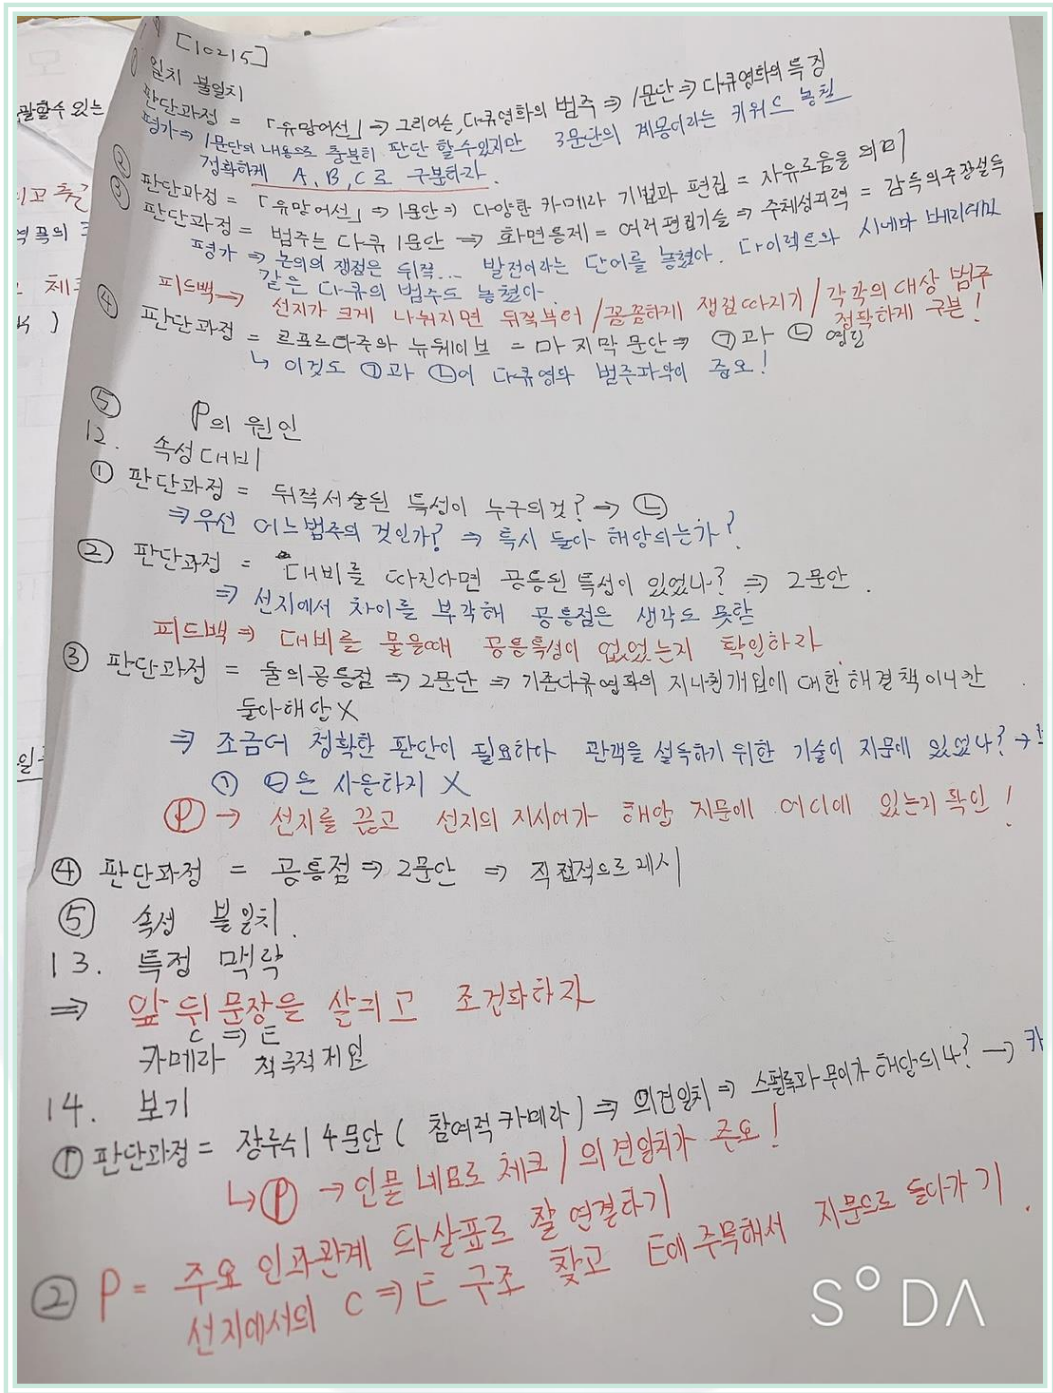 [10215]
① 일치 불일치
판단과정 = 「유망어선」 → 그리어슨, 다큐영화의 범주 ⇒ 1문단 ⇒ 다큐영화의 특징
평가 ⇒ 1문단의 내용으로 충분히 판단 할 수 있지만 3문단의 계몽이라는 키워드 놓침
정확하게 A, B, C로 구분하자.
② 판단과정 = 「유망어선」 ⇒ 1문단 ⇒ 다양한 카메라 기법과 편집 = 자유로움을 의미
③ 판단과정 = 범주는 다큐 1문단 ⇒ 화면통제 = 여러편집기술 ⇒ 주체성피력 = 감독의주장설득
평가 ⇒ 논의의 쟁점은 뒤쪽... 발전이라는 단어를 놓쳤다. 다이렉트와 시네마 베리떼가
같은 다큐의 범주도 놓쳤다.
피드백 → 선지가 크게 나눠지면 뒤쪽부터 / 꼼꼼하게 쟁점따지기 / 각각의 대상 범주
정확하게 구분!
④ 판단과정 = 르포르타주와 뉴웨이브 = 마지막 문단 ⇒ ㉠과 ㉡ 영향
↳ 이것도 ㉠과 ㉡이 다큐영화 범주파악이 중요!
⑤
12. P의 원인
속성대비
① 판단과정 = 뒤쪽서술된 특성이 누구의것? → ㉡
⇒ 우선 어느범주의 것인가? ⇒ 혹시 둘다 해당되는가?
② 판단과정 = 대비를 따진다면 공통된 특성이 있었나? ⇒ 2문단.
⇒ 선지에서 차이를 부각해 공통점은 생각도 못함
피드백 ⇒ 대비를 물을때 공통특성이 없었는지 확인하라
③ 판단과정 = 둘의공통점 ⇒ 2문단 ⇒ 기존다큐영화의 지나친개입에 대한 해결책이니깐
둘다해당 X
⇒ 조금더 정확한 판단이 필요하다 관객을 설득하기 위한 기술이 지문에 있었나? →
㉠ ㉡은 사용하지 X
Ⓟ → 선지를 끊고 선지의 지시어가 해당 지문에 어디에 있는지 확인!
④ 판단과정 = 공통점 ⇒ 2문단 ⇒ 직접적으로제시
⑤ 속성 불일치.
13. 특정 맥락
⇒ 앞 뒤 문장을 살피고 조건화하자
C ⇒ E
카메라 적극적개입
14. 보기
① 판단과정 = 장루슈 | 4문단 ( 참여적 카메라 ) ⇒ 의견일치 ⇒ 스펄록과 무어가 해당되나? → 카
↳ Ⓟ → 인물 네모로 체크 / 의견일치가 중요!
② P = 주요 인과관계 화살표로 잘 연결하기
선지에서의 C ⇒ E 구조 찾고 E에 주목해서 지문으로 돌아가기.
SODA
괄할수 있는